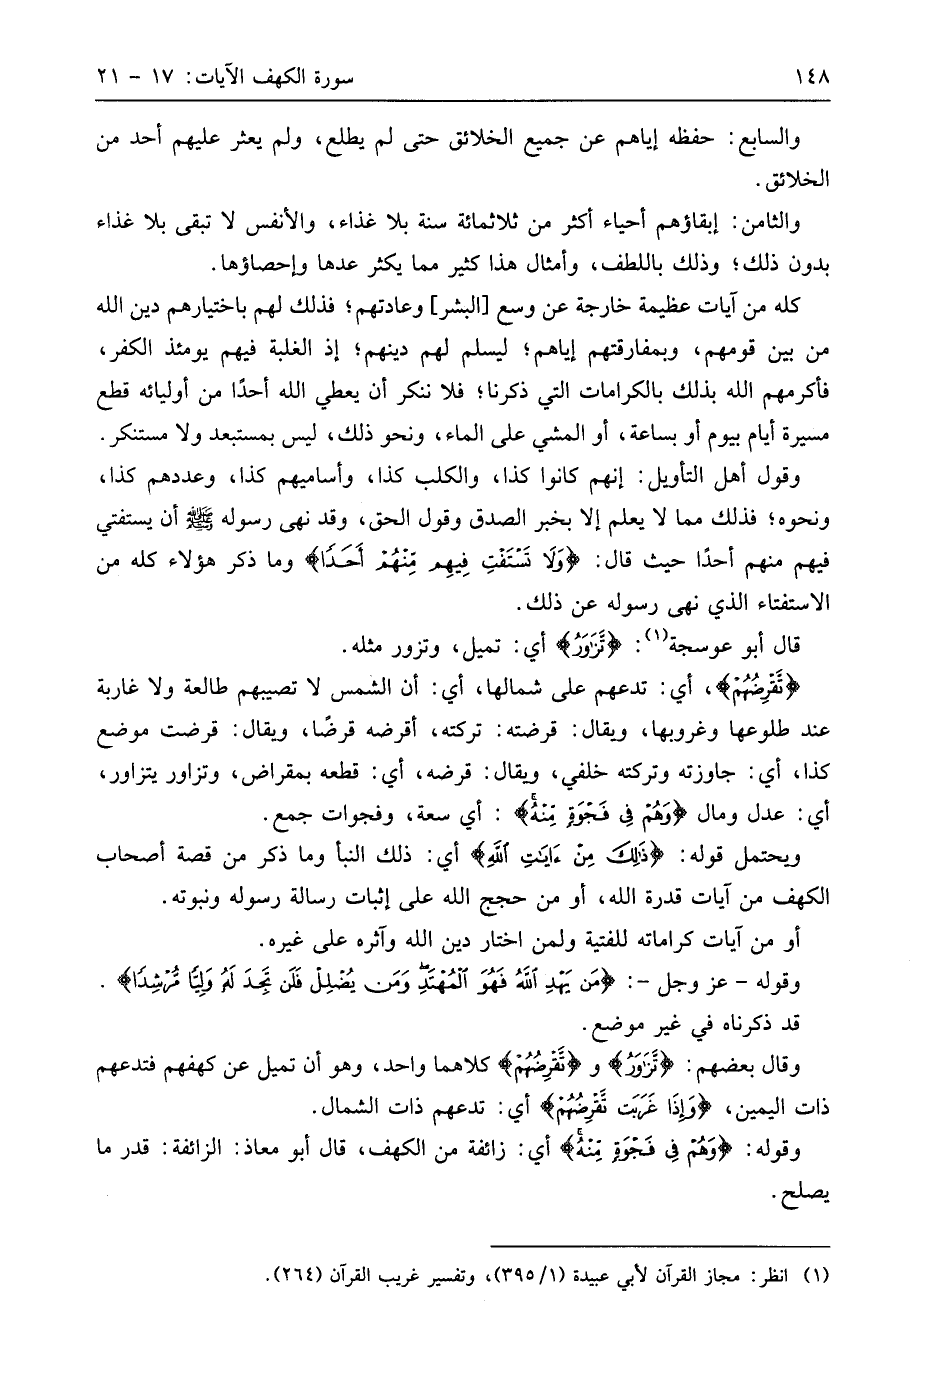 ١٤٨ سورة الكهف الآيات: ١٧ - ٢١
والسابع: حفظه إياهم عن جميع الخلائق حتى لم يطلع، ولم يعثر عليهم أحد من
الخلائق.
والثامن: إبقاؤهم أحياء أكثر من ثلاثمائة سنة بلا غذاء، والأنفس لا تبقى بلا غذاء
بدون ذلك؛ وذلك باللطف، وأمثال هذا كثير مما يكثر عدها وإحصاؤها.
كله من آيات عظيمة خارجة عن وسع [البشر] وعادتهم؛ فذلك لهم باختيارهم دين الله
من بين قومهم، وبمفارقتهم إياهم؛ ليسلم لهم دينهم؛ إذ الغلبة فيهم يومئذ الكفر،
فأكرمهم الله بذلك بالكرامات التي ذكرنا؛ فلا ننكر أن يعطي الله أحدًا من أوليائه قطع
مسيرة أيام بيوم أو بساعة، أو المشي على الماء، ونحو ذلك، ليس بمستبعد ولا مستنكر.
وقول أهل التأويل: إنهم كانوا كذا، والكلب كذا، وأساميهم كذا، وعددهم كذا،
ونحوه؛ فذلك مما لا يعلم إلا بخبر الصدق وقول الحق، وقد نهى رسوله ﷺ أن يستفتي
فيهم منهم أحدًا حيث قال: ﴿وَلَا تَسْتَفْتِ فِيهِم مِّنْهُمْ أَحَدًا﴾ وما ذكر هؤلاء كله من
الاستفتاء الذي نهى رسوله عن ذلك.
قال أبو عوسجة(١): ﴿تَّزَٰوَرُ﴾ أي: تميل، وتزور مثله.
﴿تَّقْرِضُهُمْ﴾، أي: تدعهم على شمالها، أي: أن الشمس لا تصيبهم طالعة ولا غاربة
عند طلوعها وغروبها، ويقال: قرضته: تركته، أقرضه قرضًا، ويقال: قرضت موضع
كذا، أي: جاوزته وتركته خلفي، ويقال: قرضه، أي: قطعه بمقراض، وتزاور يتزاور،
أي: عدل ومال ﴿وَهُمْ فِي فَجْوَةٍ مِّنْهُ﴾ : أي سعة، وفجوات جمع.
ويحتمل قوله: ﴿ذَٰلِكَ مِنْ ءَايَٰتِ ٱللَّهِ﴾ أي: ذلك النبأ وما ذكر من قصة أصحاب
الكهف من آيات قدرة الله، أو من حجج الله على إثبات رسالة رسوله ونبوته.
أو من آيات كراماته للفتية ولمن اختار دين الله وآثره على غيره.
وقوله - عز وجل -: ﴿مَن يَهْدِ ٱللَّهُ فَهُوَ ٱلْمُهْتَدِ وَمَن يُضْلِلْ فَلَن تَجِدَ لَهُ وَلِيًّا مُّرْشِدًا﴾ .
قد ذكرناه في غير موضع.
وقال بعضهم: ﴿تَّزَٰوَرُ﴾ و ﴿تَّقْرِضُهُمْ﴾ كلاهما واحد، وهو أن تميل عن كهفهم فتدعهم
ذات اليمين، ﴿وَإِذَا غَرَبَت تَّقْرِضُهُمْ﴾ أي: تدعهم ذات الشمال.
وقوله: ﴿وَهُمْ فِي فَجْوَةٍ مِّنْهُ﴾ أي: زائفة من الكهف، قال أبو معاذ: الزائفة: قدر ما
يصلح.
(١) انظر: مجاز القرآن لأبي عبيدة (٣٩٥/١)، وتفسير غريب القرآن (٢٦٤).